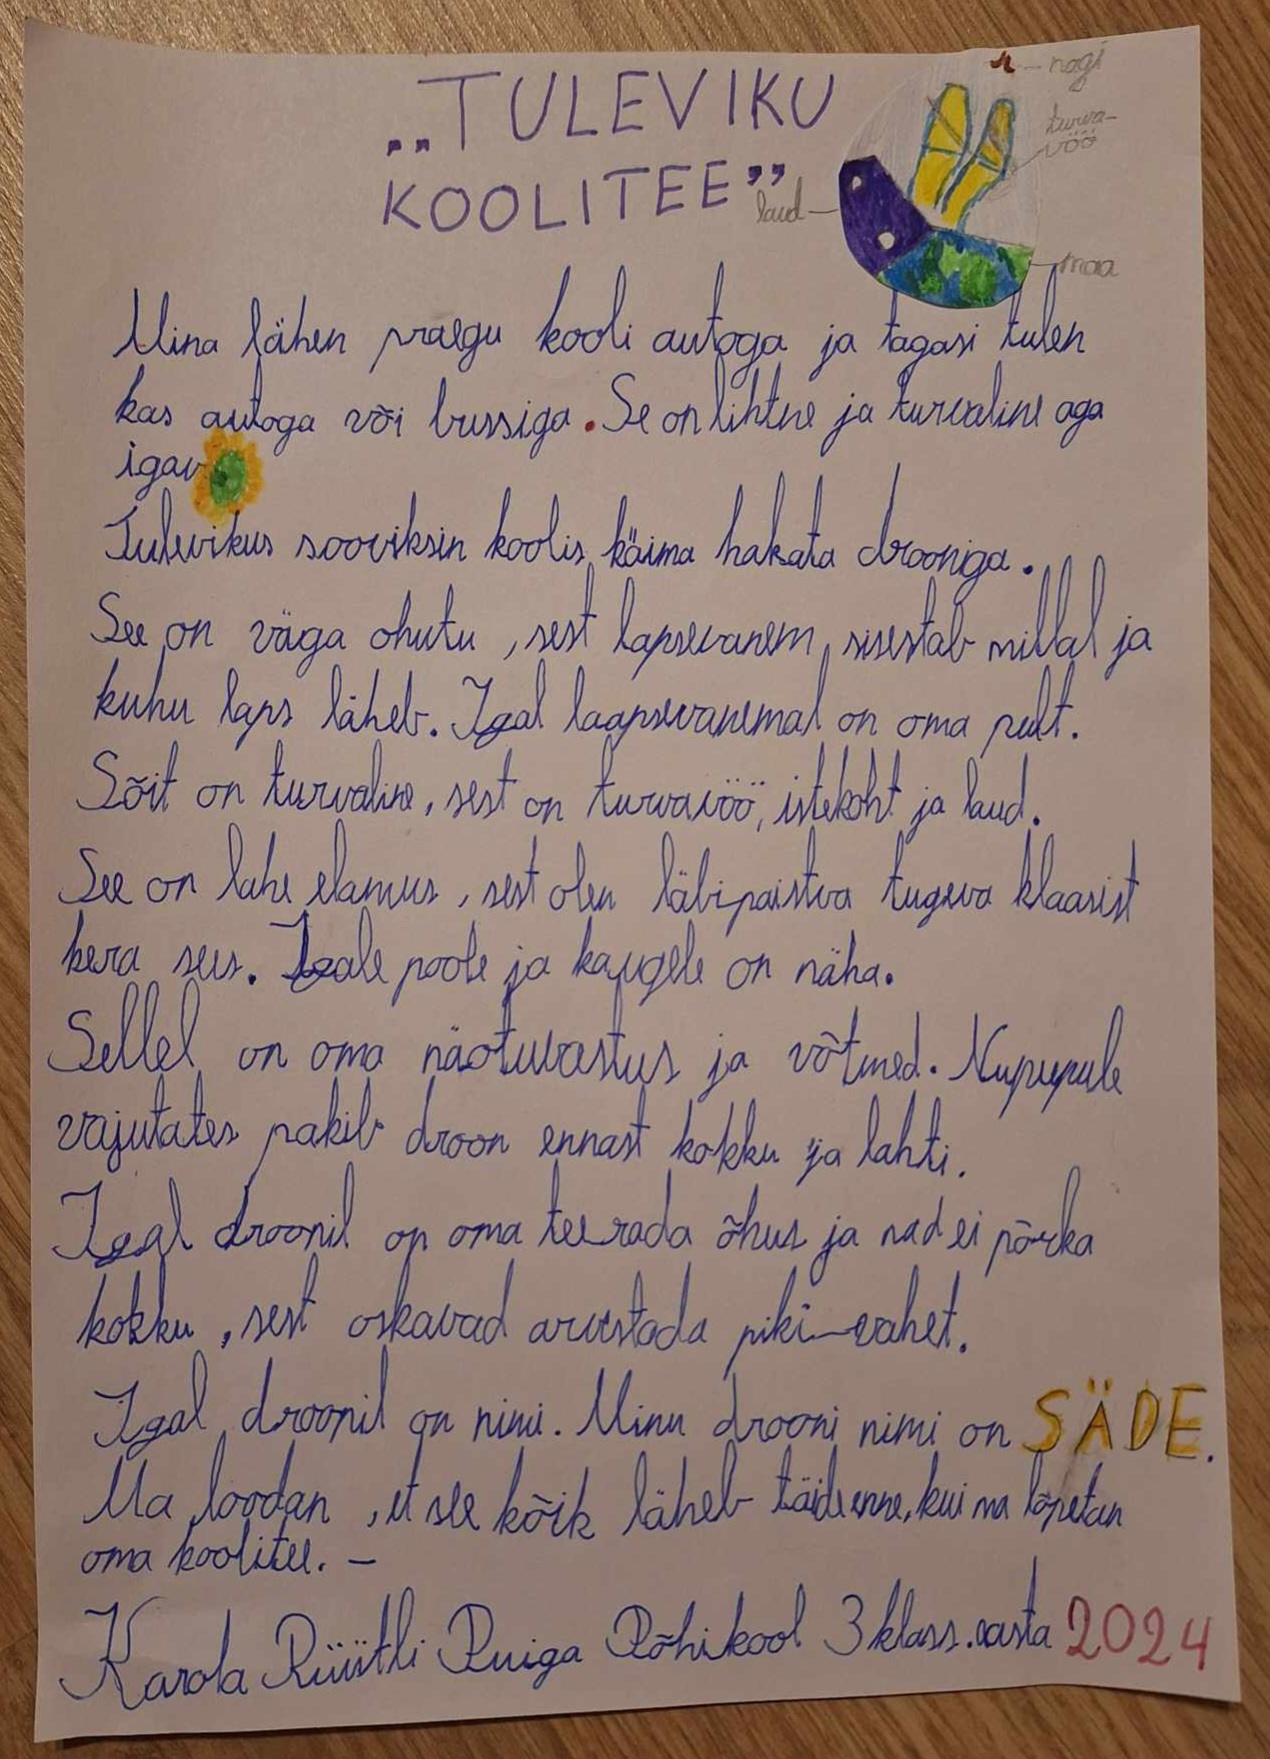 „TULEVIKU
KOOLITEE”
nagi
turva-
vöö
laud
maa
Mina lähen praegu kooli autoga ja tagasi tulen
kas autoga või bussiga. Se on lihtne ja turvaline aga
igav
Tulevikus sooviksin koolis käima hakata drooniga.
See on väga ohutu, sest lapsevanem sisestab millal ja
kuhu laps läheb. Igal laapsevanemal on oma pult.
Sõit on turvaline, sest on turvavöö, istekoht ja laud.
See on lahe elamus, sest olen läbipaistva tugeva klaasist
kera sees. Igale poole ja kaugele on näha.
Sellel on oma näotuvastus ja võtmed. Nupupule
vajutates pakib droon ennast kokku ja lahti.
Igal droonil on oma teerada õhus ja nad ei põrka
kokku, sest oskavad arvestada piki-vahet.
Igal droonil on nimi. Minu drooni nimi on SÄDE.
Ma loodan, et see kõik läheb täide enne, kui ma lõpetan
oma koolitee. –
Karola Rüütli Ruiga Põhikool 3 klass. aasta 2024